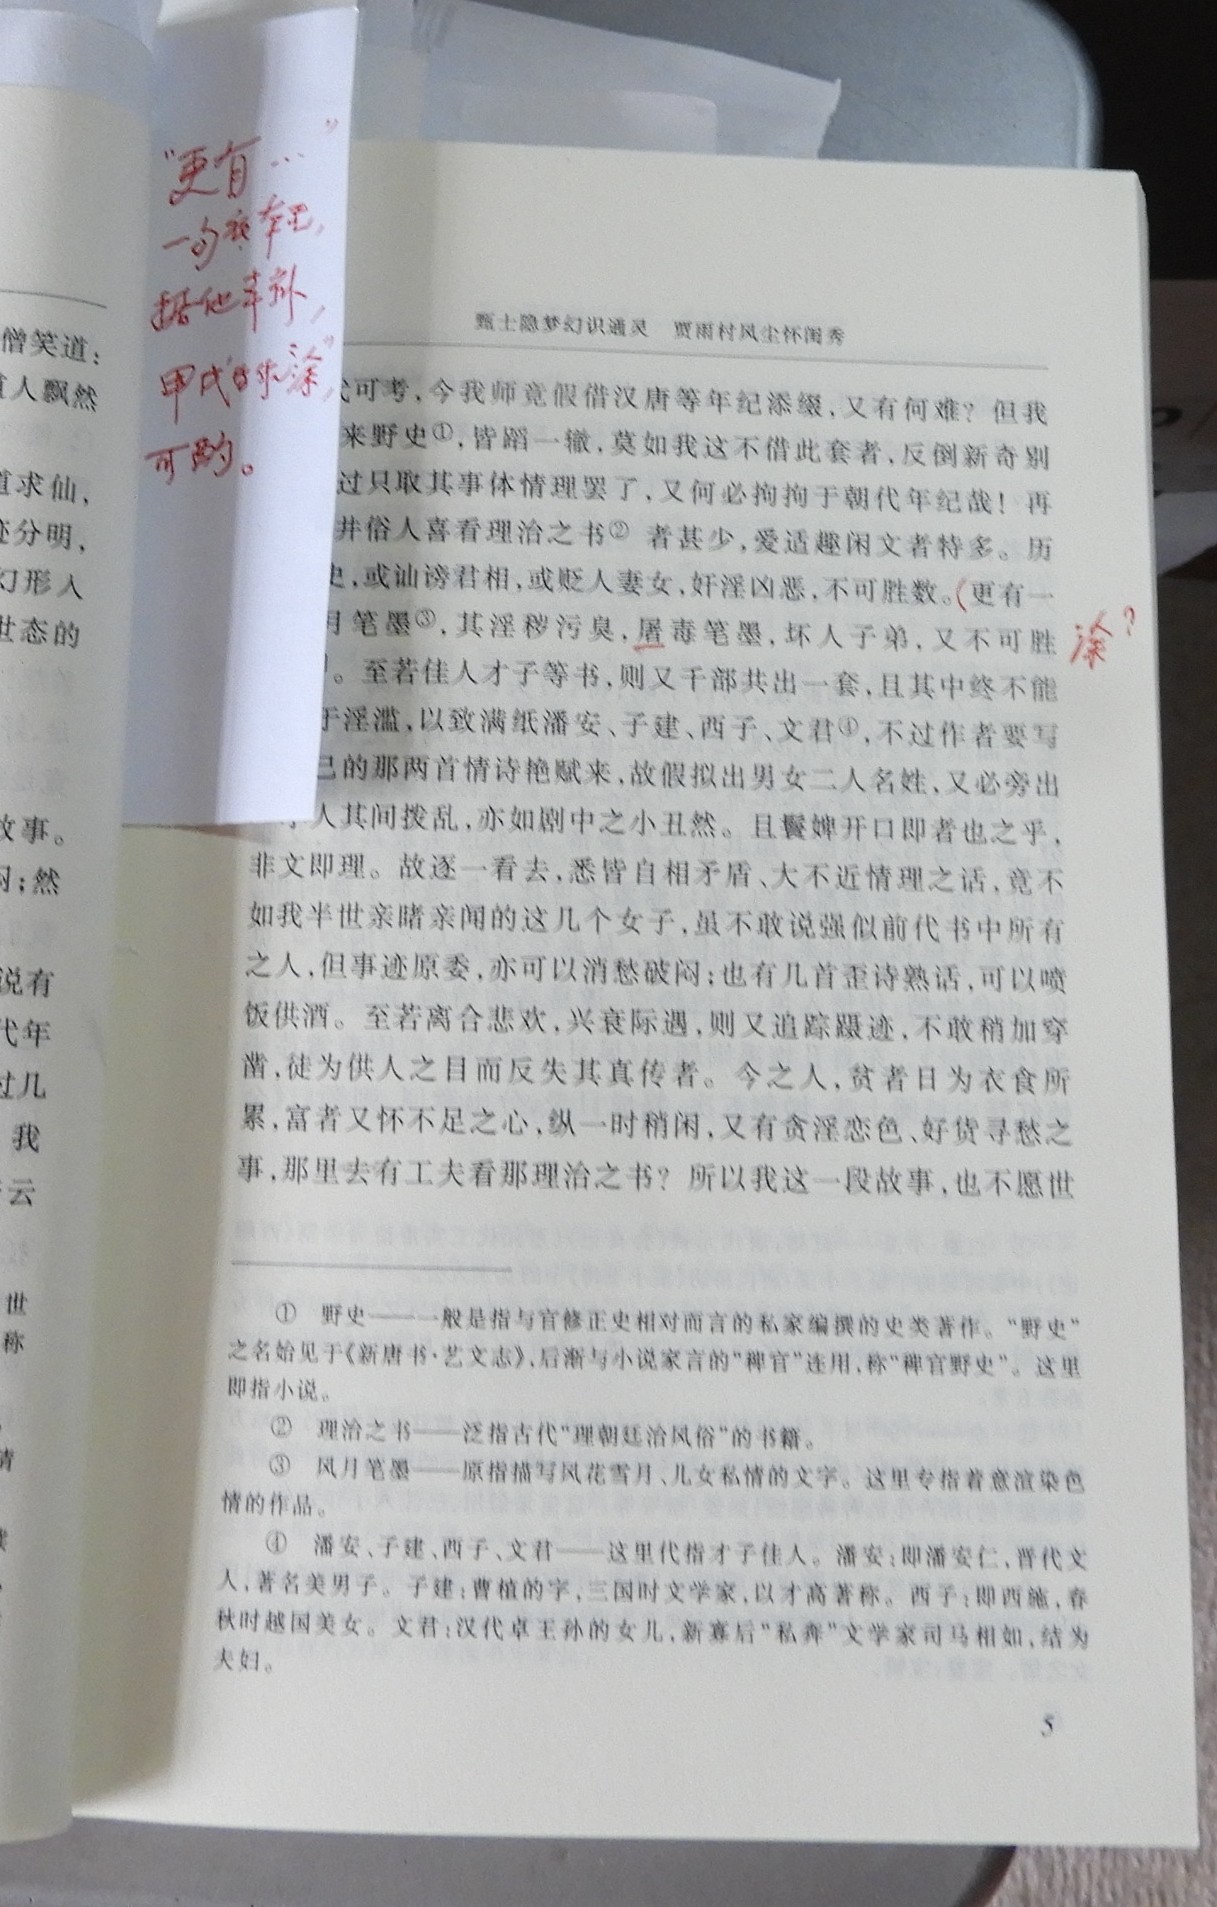 僧笑道：
人飘然
道求仙，
迹分明，
幻形入
世态的
故事。
闷；然
说有
代年
过几
我
云
世
称
情
“更有…”
一句
据他本补，
甲戌 作“涂”，
可酌。
甄士隐梦幻识通灵　贾雨村风尘怀闺秀
代可考，今我师竟假借汉唐等年纪添缀，又有何难？但我
来野史①，皆蹈一辙，莫如我这不借此套者，反倒新奇别
过只取其事体情理罢了，又何必拘拘于朝代年纪哉！再
井俗人喜看理治之书②者甚少，爱适趣闲文者特多。历
史，或讪谤君相，或贬人妻女，奸淫凶恶，不可胜数。（更有一
月笔墨③，其淫秽污臭，屠毒笔墨，坏人子弟，又不可胜
涂？
。至若佳人才子等书，则又千部共出一套，且其中终不能
于淫滥，以致满纸潘安、子建、西子、文君④，不过作者要写
己的那两首情诗艳赋来，故假拟出男女二人名姓，又必旁出
人其间拨乱，亦如剧中之小丑然。且鬟婢开口即者也之乎，
非文即理。故逐一看去，悉皆自相矛盾、大不近情理之话，竟不
如我半世亲睹亲闻的这几个女子，虽不敢说强似前代书中所有
之人，但事迹原委，亦可以消愁破闷；也有几首歪诗熟话，可以喷
饭供酒。至若离合悲欢，兴衰际遇，则又追踪蹑迹，不敢稍加穿
凿，徒为供人之目而反失其真传者。今之人，贫者日为衣食所
累，富者又怀不足之心，纵一时稍闲，又有贪淫恋色、好货寻愁之
事，那里去有工夫看那理治之书？所以我这一段故事，也不愿世
①　野史——一般是指与官修正史相对而言的私家编撰的史类著作。“野史”
之名始见于《新唐书·艺文志》，后渐与小说家言的“稗官”连用，称“稗官野史”。这里
即指小说。
②　理治之书——泛指古代“理朝廷治风俗”的书籍。
③　风月笔墨——原指描写风花雪月、儿女私情的文字。这里专指着意渲染色
情的作品。
④　潘安、子建、西子、文君——这里代指才子佳人。潘安：即潘安仁，晋代文
人，著名美男子。子建：曹植的字，三国时文学家，以才高著称。西子：即西施，春
秋时越国美女。文君：汉代卓王孙的女儿，新寡后“私奔”文学家司马相如，结为
夫妇。
5